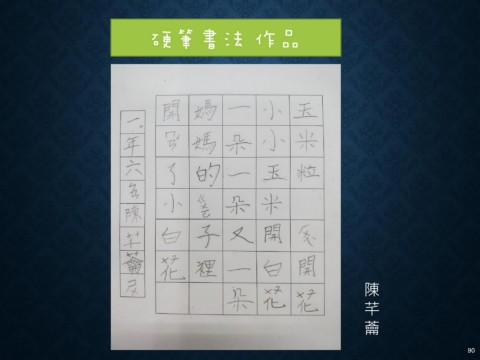 硬筆書法 作品
玉米粒 開花
小小玉米開白花
一朵一朵又一朵
媽媽的 子裡
開 了小白花
一年六 陳芊
陳芊蘥
90